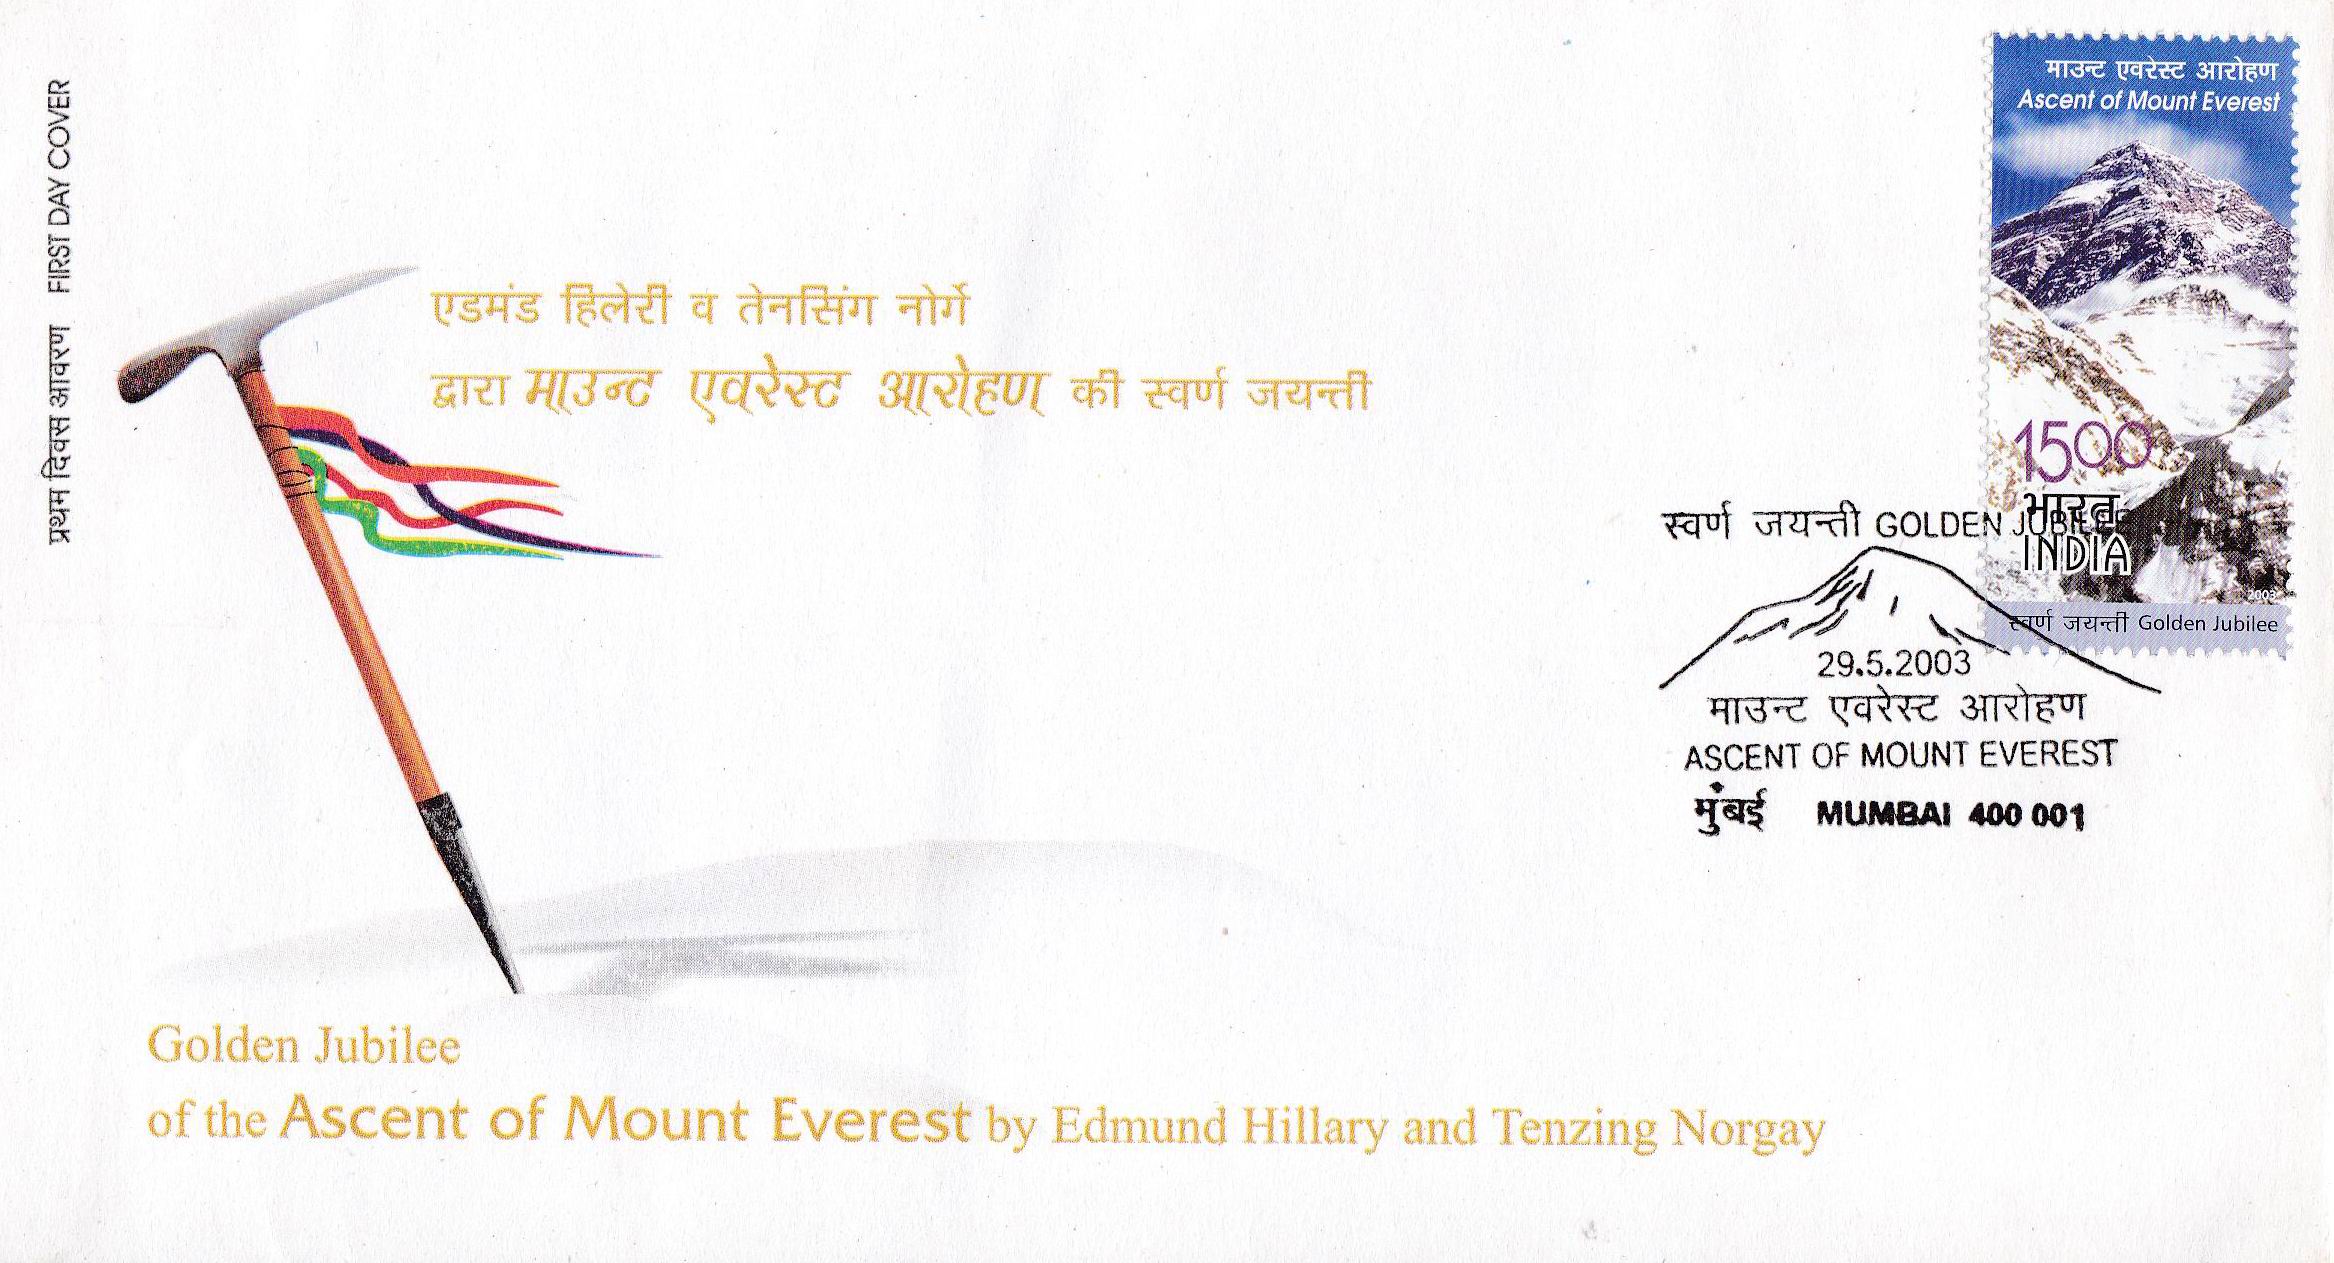 प्रथम दिवस आवरण FIRST DAY COVER
माउन्ट एवरेस्ट आरोहण
Ascent of Mount Everest
1500
भारत
INDIA
2003
स्वर्ण जयन्ती Golden Jubilee
एडमंड हिलेरी व तेनसिंग नोर्गे
द्वारा माउन्ट एवरेस्ट आरोहण की स्वर्ण जयन्ती
स्वर्ण जयन्ती GOLDEN JUBILEE
29.5.2003
माउन्ट एवरेस्ट आरोहण
ASCENT OF MOUNT EVEREST
मुंबई MUMBAI 400 001
Golden Jubilee
of the Ascent of Mount Everest by Edmund Hillary and Tenzing Norgay